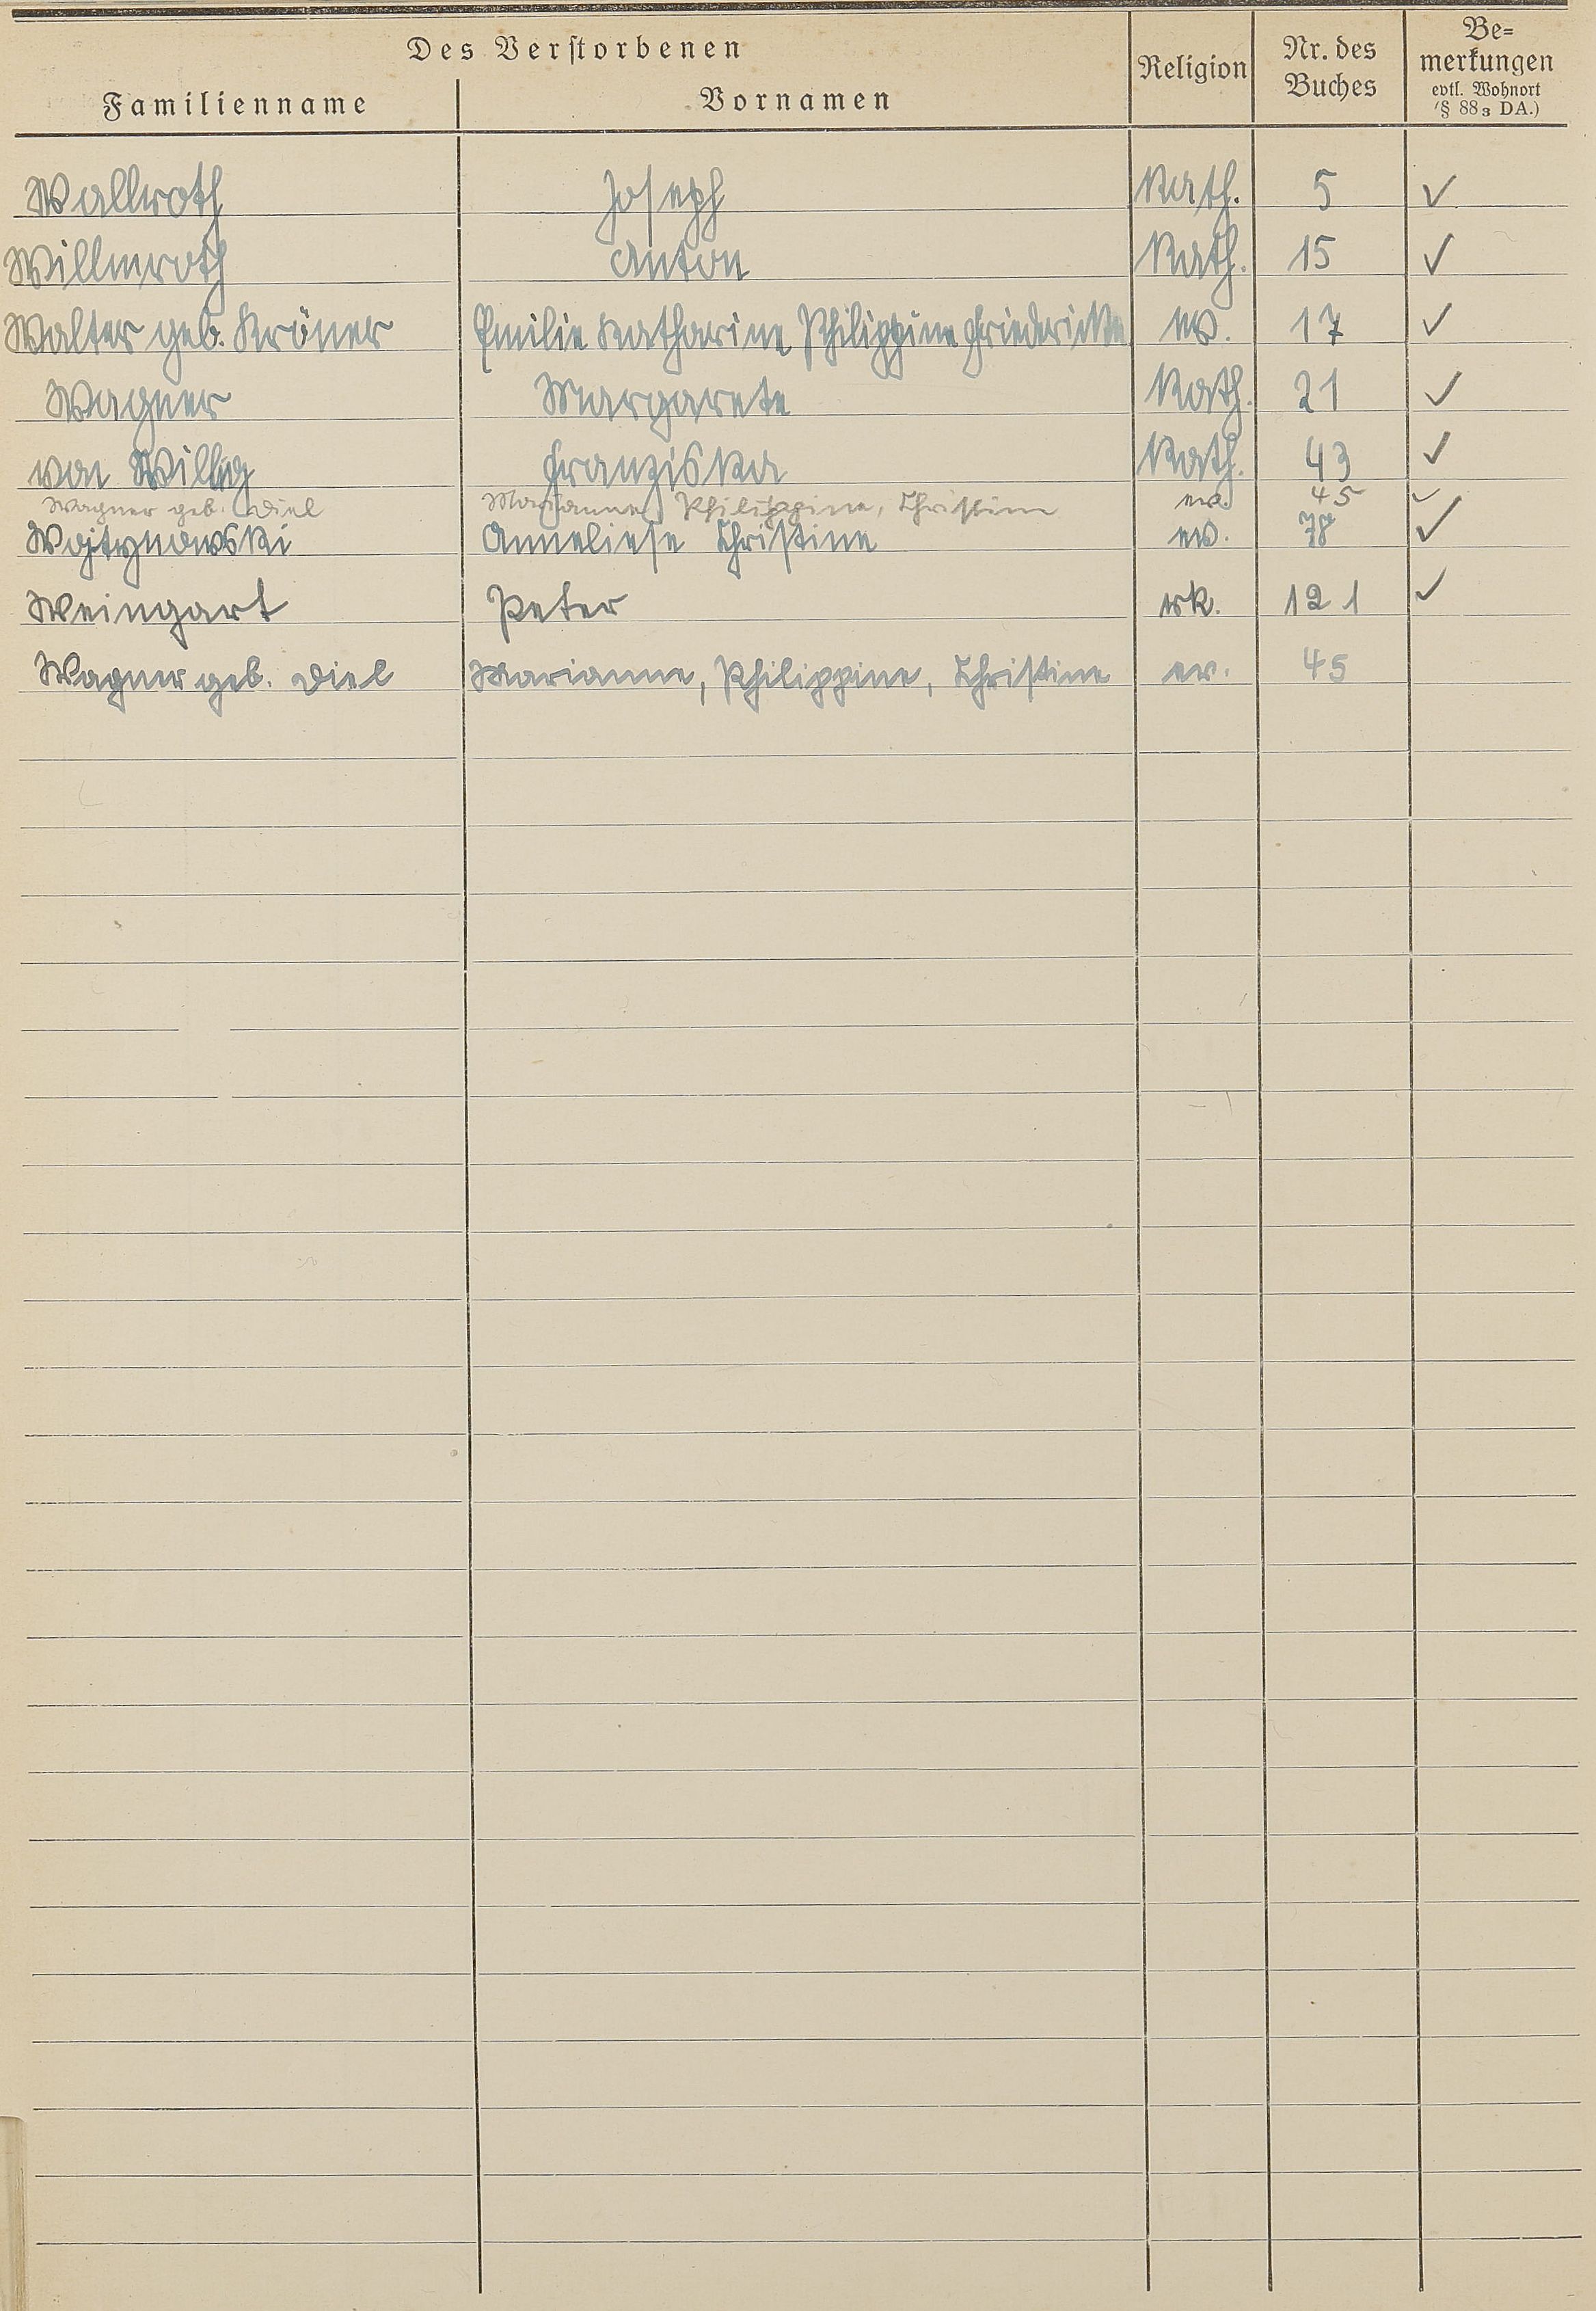 Des Verstorbenen
Familienname Vornamen Religion Nr. des Buches Be=merkungen evtl. Wohnort (§ 88₃ DA.)
Wallroth Joseph Kath. 5 ✓
Willmroth Anton Kath. 15 ✓
Walter geb. Kröner Emilie Katharine Philippine Friedericke ev. 17 ✓
Wagner Margarete Kath. 21 ✓
von Willig Franziska Kath. 43 ✓
Wagner geb. Diel Marianne, Philippine, Christine ev. 45 ✓
Wojtynowski Anneliese Christine ev. 78 ✓
Weingart Peter rk. 121 ✓
Wagner geb. Diel Marianne, Philippine, Christine ev. 45